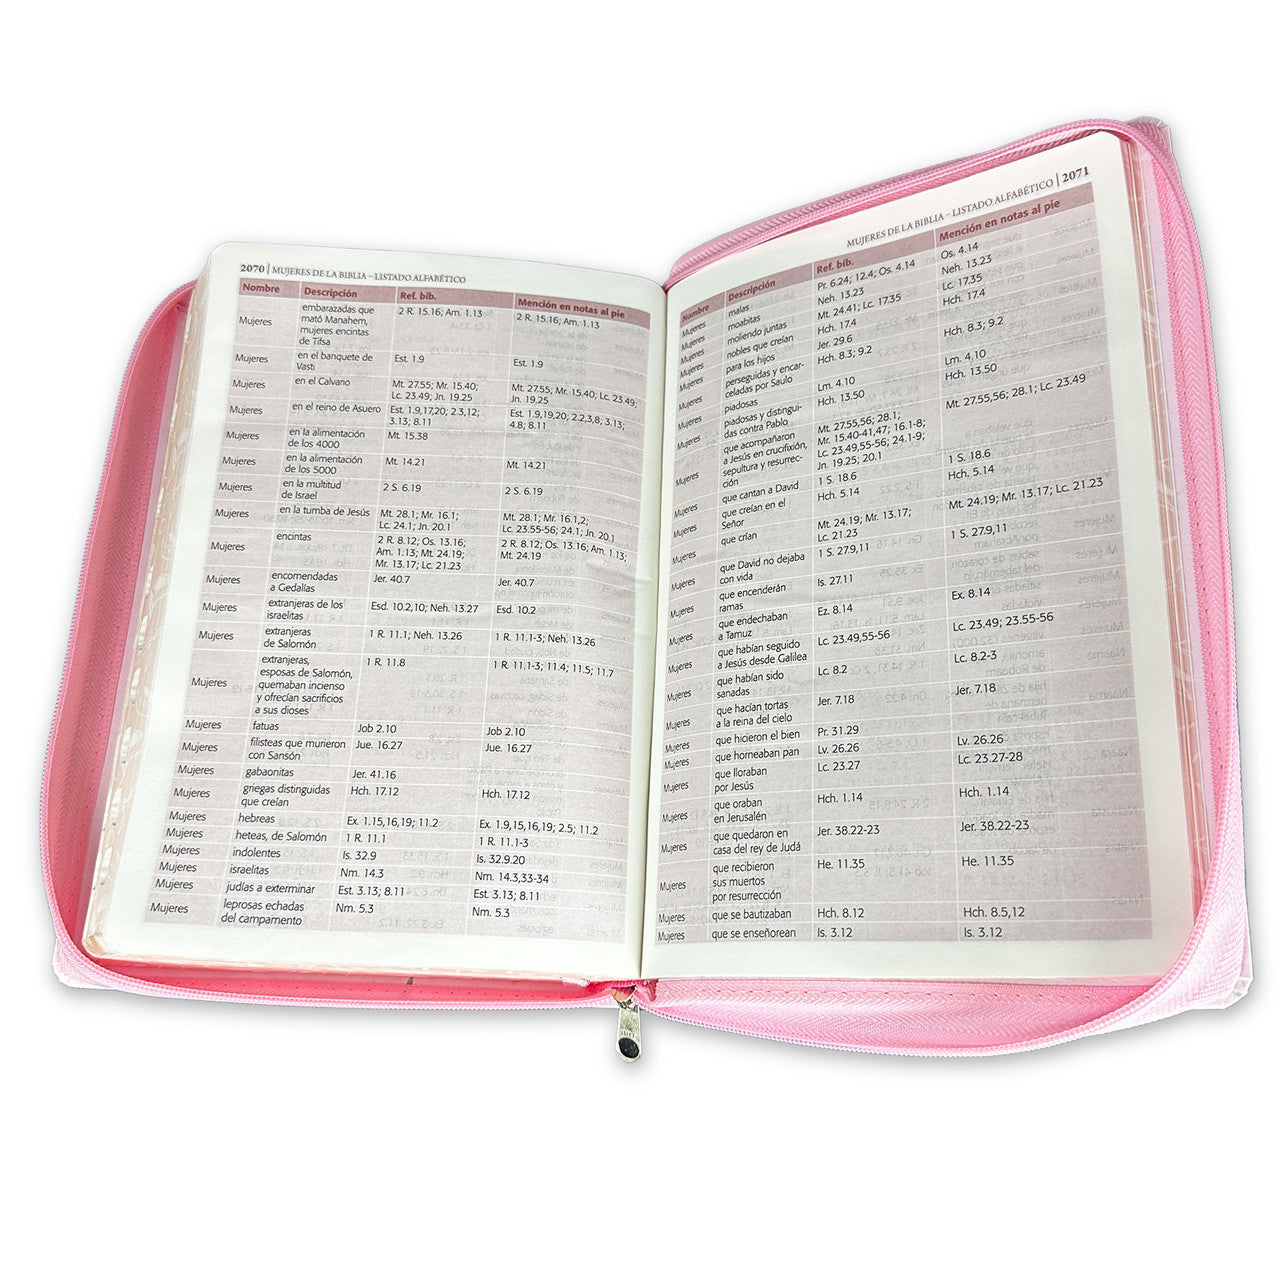 2070 | MUJERES DE LA BIBLIA – LISTADO ALFABÉTICO
Nombre Descripción Ref. bíb. Mención en notas al pie
Mujeres embarazadas que 2 R. 15.16; Am. 1.13 2 R. 15.16; Am. 1.13
mató Manahem,
mujeres encintas
de Tifsa
Mujeres en el banquete de Est. 1.9 Est. 1.9
Vasti
Mujeres en el Calvario Mt. 27.55; Mr. 15.40; Mt. 27.55; Mr. 15.40; Lc. 23.49;
Lc. 23.49; Jn. 19.25 Jn. 19.25
Mujeres en el reino de Asuero Est. 1.9,17,20; 2.3,12; Est. 1.9,19,20; 2.2,3,8; 3.13;
3.13; 8.11 4.8; 8.11
Mujeres en la alimentación Mt. 15.38
de los 4000
Mujeres en la alimentación Mt. 14.21 Mt. 14.21
de los 5000
Mujeres en la multitud 2 S. 6.19 2 S. 6.19
de Israel
Mujeres en la tumba de Jesús Mt. 28.1; Mr. 16.1; Mt. 28.1; Mr. 16.1,2;
Lc. 24.1; Jn. 20.1 Lc. 23.55-56; 24.1; Jn. 20.1
Mujeres encintas 2 R. 8.12; Os. 13.16; 2 R. 8.12; Os. 13.16; Am. 1.13;
Am. 1.13; Mt. 24.19; Mt. 24.19
Mr. 13.17; Lc. 21.23
Mujeres encomendadas Jer. 40.7 Jer. 40.7
a Gedalías
Mujeres extranjeras de los Esd. 10.2,10; Neh. 13.27 Esd. 10.2
israelitas
Mujeres extranjeras 1 R. 11.1; Neh. 13.26 1 R. 11.1-3; Neh. 13.26
de Salomón
Mujeres extranjeras, 1 R. 11.8 1 R. 11.1-3; 11.4; 11.5; 11.7
esposas de Salomón,
quemaban incienso
y ofrecían sacrificios
a sus dioses
Mujeres fatuas Job 2.10 Job 2.10
Mujeres filisteas que murieron Jue. 16.27 Jue. 16.27
con Sansón
Mujeres gabaonitas Jer. 41.16
Mujeres griegas distinguidas Hch. 17.12 Hch. 17.12
que creían
Mujeres hebreas Ex. 1.15,16,19; 11.2 Ex. 1.9,15,16,19; 2.5; 11.2
Mujeres heteas, de Salomón 1 R. 11.1 1 R. 11.1-3
Mujeres indolentes Is. 32.9 Is. 32.9.20
Mujeres israelitas Nm. 14.3 Nm. 14.3,33-34
Mujeres judías a exterminar Est. 3.13; 8.11 Est. 3.13; 8.11
Mujeres leprosas echadas Nm. 5.3 Nm. 5.3
del campamento
MUJERES DE LA BIBLIA – LISTADO ALFABÉTICO | 2071
Nombre Descripción Ref. bíb. Mención en notas al pie
Mujeres malas Pr. 6.24; 12.4; Os. 4.14 Os. 4.14
Mujeres moabitas Neh. 13.23 Neh. 13.23
Mujeres moliendo juntas Mt. 24.41; Lc. 17.35 Lc. 17.35
Mujeres nobles que creían Hch. 17.4 Hch. 17.4
Mujeres para los hijos Jer. 29.6
Mujeres perseguidas y encar- Hch. 8.3; 9.2 Hch. 8.3; 9.2
celadas por Saulo
Mujeres piadosas Lm. 4.10 Lm. 4.10
Mujeres piadosas y distingui- Hch. 13.50 Hch. 13.50
das contra Pablo
Mujeres que acompañaron Mt. 27.55,56; 28.1; Mt. 27.55,56; 28.1; Lc. 23.49
a Jesús en crucifixión, Mr. 15.40-41,47; 16.1-8;
sepultura y resurrec- Lc. 23.49,55-56; 24.1-9;
ción Jn. 19.25; 20.1
Mujeres que cantan a David 1 S. 18.6 1 S. 18.6
Mujeres que creían en el Hch. 5.14 Hch. 5.14
Señor
Mujeres que crían Mt. 24.19; Mr. 13.17; Mt. 24.19; Mr. 13.17; Lc. 21.23
Lc. 21.23
Mujeres que David no dejaba 1 S. 27.9,11 1 S. 27.9,11
con vida
Mujeres que encenderán Is. 27.11
ramas
Mujeres que endechaban Ez. 8.14 Ex. 8.14
a Tamuz
Mujeres que habían seguido Lc. 23.49,55-56 Lc. 23.49; 23.55-56
a Jesús desde Galilea
Mujeres que habían sido Lc. 8.2 Lc. 8.2-3
sanadas
Mujeres que hacían tortas Jer. 7.18 Jer. 7.18
a la reina del cielo
Mujeres que hicieron el bien Pr. 31.29
Mujeres que horneaban pan Lv. 26.26 Lv. 26.26
Mujeres que lloraban Lc. 23.27 Lc. 23.27-28
por Jesús
Mujeres que oraban Hch. 1.14 Hch. 1.14
en Jerusalén
Mujeres que quedaron en Jer. 38.22-23 Jer. 38.22-23
casa del rey de Judá
Mujeres que recibieron He. 11.35 He. 11.35
sus muertos
por resurrección
Mujeres que se bautizaban Hch. 8.12 Hch. 8.5,12
Mujeres que se enseñorean Is. 3.12 Is. 3.12